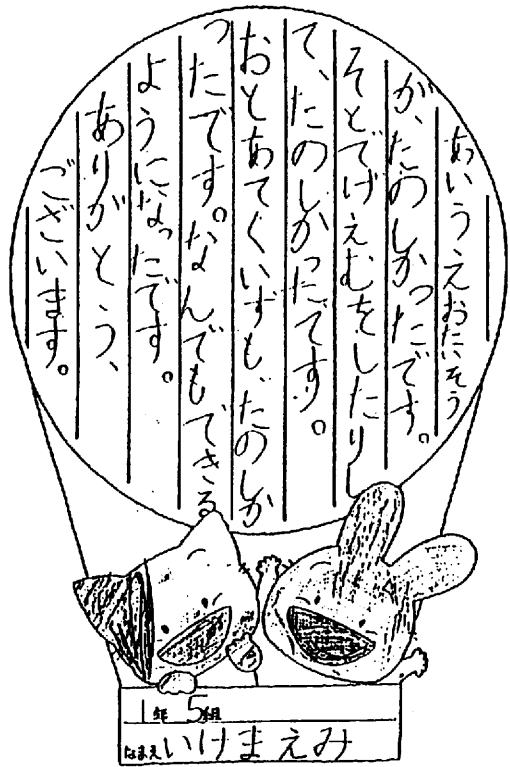 あいうえおたいそう
が、たのしかったです。
そとでげえむをしたりし
て、たのしかったです。
おとあてくいずも、たのしか
ったです。なんでもできる
ようになったです。
ありがとう、
ございます。
1年 5組
なまえ いけまえみ